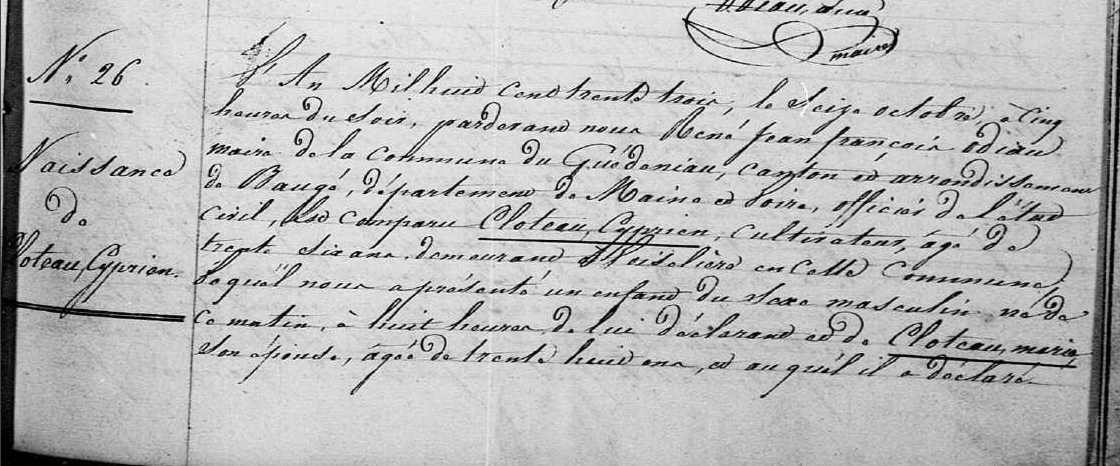 maire
N.º 26
Naissance
de
Cloteau, Cyprien.
L'An Mil huit cent trente trois, le Seize octobre, à Cinq
heures du Soir, pardevant nous René Jean françois odiau
maire de la Commune du Guédeniau, canton et arrondissement
de Baugé, département de Maine et Loire, officier de l'état
Civil, est comparu Cloteau, Cyprien, cultivateur, âgé de
trente six ans, demeurant en cette Commune,
lequel nous a présenté un enfant du sexe masculin né de
ce matin, à huit heures, de lui déclarant et de Cloteau, marie
son épouse, âgée de trente huit ans, et auquél il a déclaré